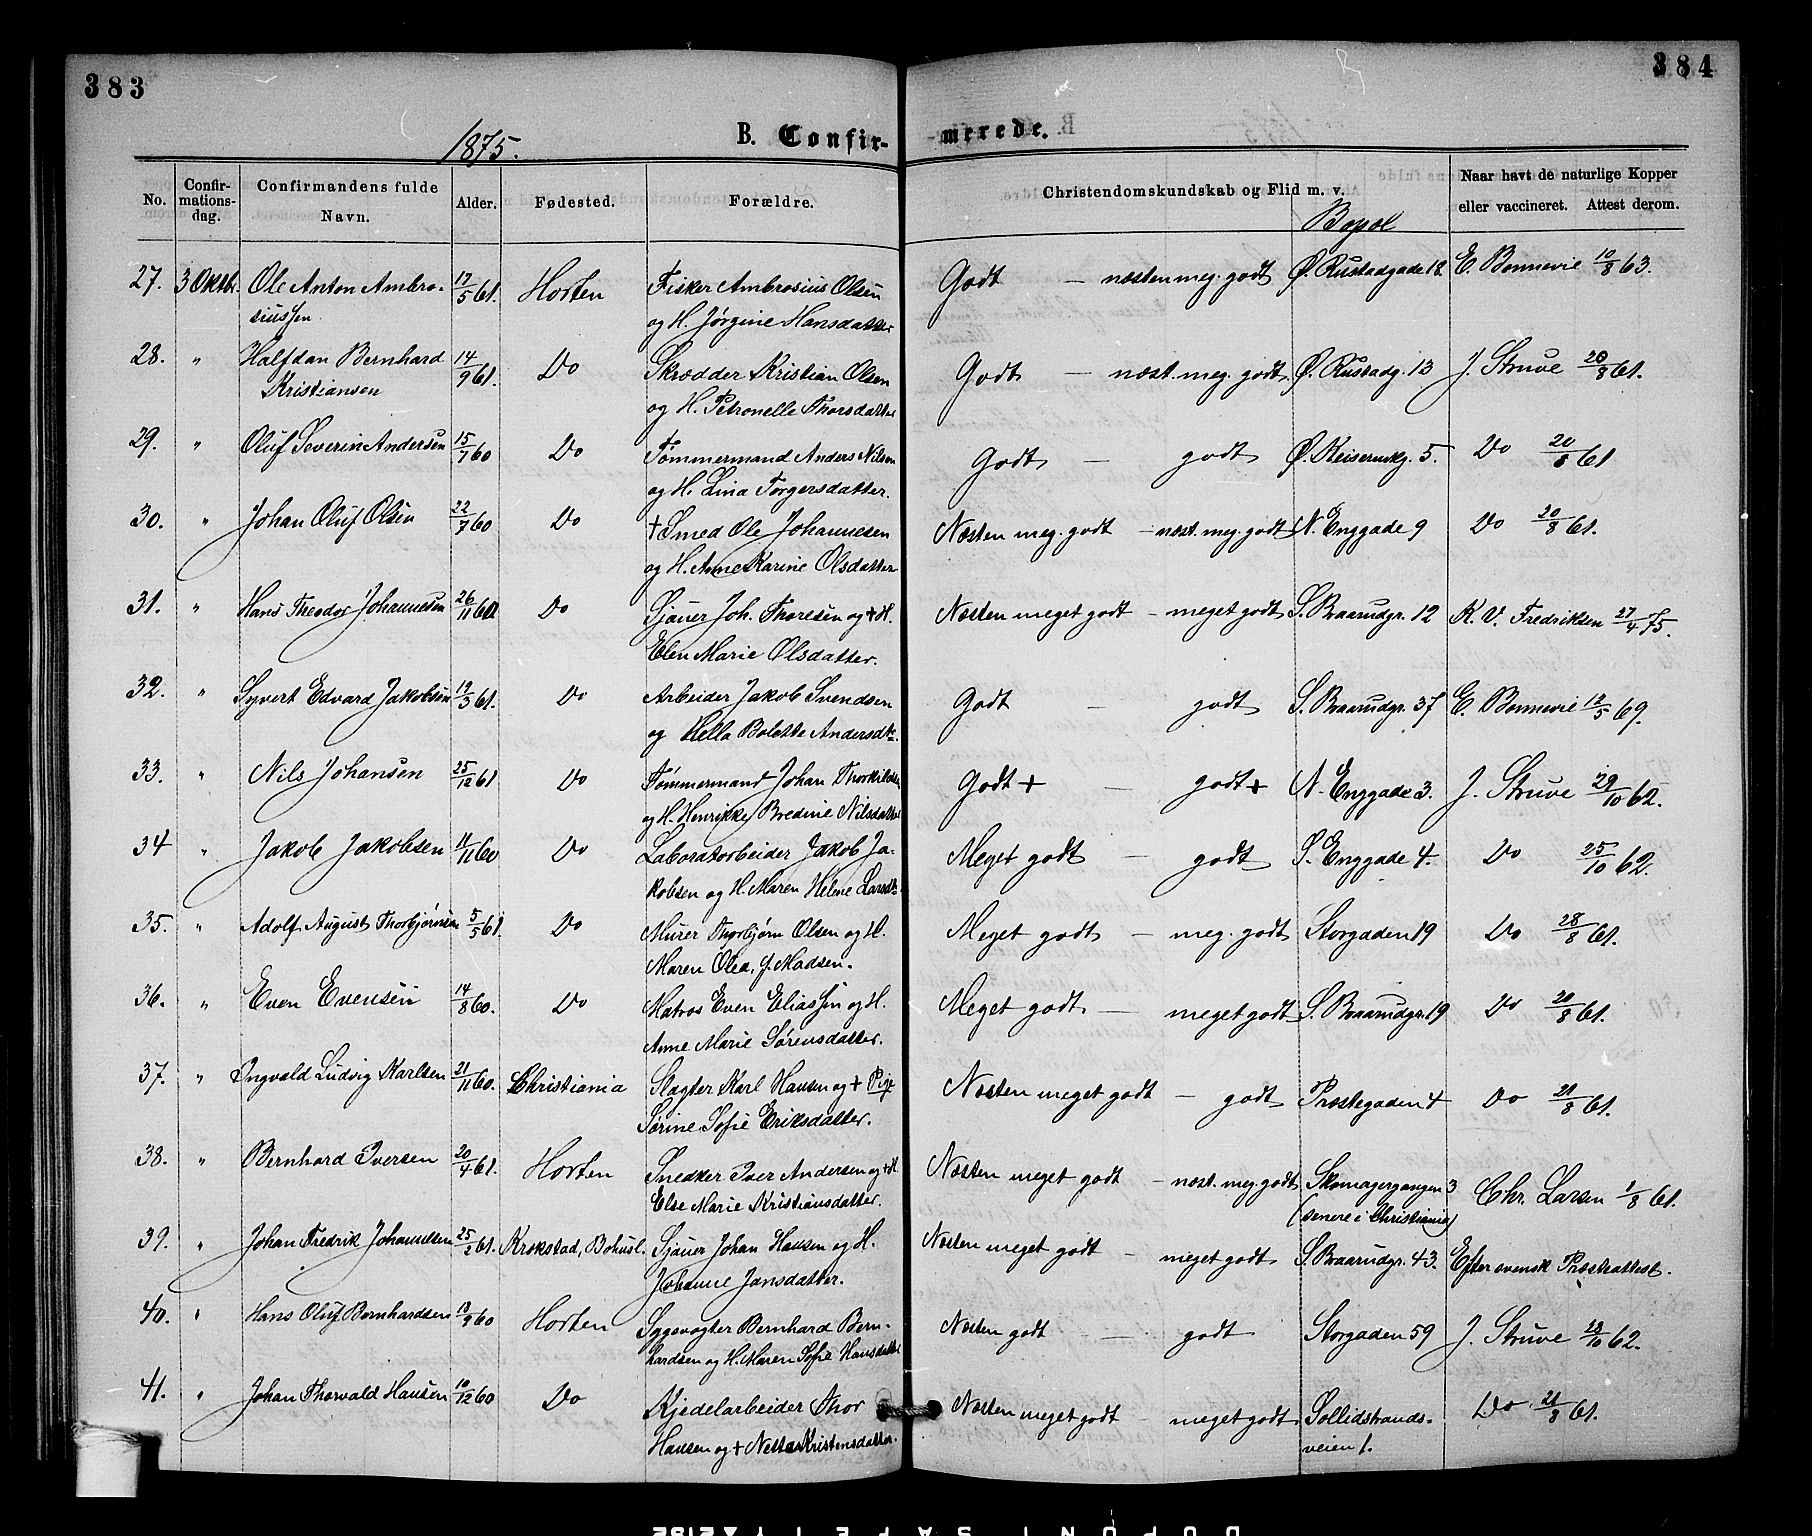 383
384
1875.
B. Confir-
merede.
No.
Confir-
mations-
dag.
Confirmandens fulde
Navn.
Alder.
Fødested.
Forældre.
Christendomskundskab og Flid m. v.
Bopæl
Naar havt de naturlige Kopper
eller vaccineret. Attest derom.
27. 3 Oktbr. Ole Anton Ambro- 17/5 61. Horten Fisker Ambrosius Olsen Godt — næsten meg. godt Ø. Rustadgade 18. E. Bonnevie 10/8 63.
siussen og H. Jørgine Hansdatter
28. " Halfdan Bernhard 14/9 61. Do Skrædder Kristian Olsen Godt — næst. meg. godt Ø. Rustadg. 13 J. Struve 20/8 61.
Kristiansen og H. Petronelle Thorsdatter
29. " Oluf Severin Andersen 15/7 60 Do Tømmermand Anders Nilsen Godt — godt Ø. Keisermkg. 5. Do 20/8 61
og H. Lina Torgersdatter.
30. " Johan Oluf Olsen 22/7 60 Do + Smed Ole Johannesen Næsten meg. godt — næst. meg. godt N. Enggade 9 Do 20/8 61.
og H. Anne Karine Olsdatter
31. " Hans Theodor Johannesen 26/11 60 Do Sjauer Joh. Thoresen og + H. Næsten meget godt — meget godt S. Braarudgr. 12 K. V. Fredriksen 27/4 75.
Elen Marie Olsdatter.
32. " Syvert Edvard Jakobsen 19/3 61. Do Arbeider Jakob Svendsen Godt — godt S. Braarudgr. 37 E. Bonnevie 12/5 69.
og Hella Bolette Andersdtr.
33. " Nils Johansen 25/12 61 Do Tømmermand Johan Thorkildsen Godt + — godt + N. Enggade 3. J. Struve 29/10 62.
og H. Henrikke Bredine Nilsdatter
34 " Jakob Jakobsen 11/11 60 Do Laboratorbeider Jakob Ja- Meget godt — godt S. Enggade 4. Do 25/10 62.
kobsen og H. Maren Helene Larsdtr
35. " Adolf August Thorbjørnsen 5/5 61. Do Murer Thorbjørn Olsen og H. Meget godt — meg. godt Storgaden 19 Do 28/8 61.
Maren Olea, f. Madsen.
36. " Even Evensen 14/8 60. Do Matros Even Eliassen og H. Meget godt — meget godt S. Braarudgr. 19 Do 20/8 61.
Anne Marie Sørensdatter.
37. " Ingvald Ludvig Karlsen 21/11 60. Christiania Slagter Karl Hansen og + Pige Næsten meget godt — godt Præstegaden 4 Do 21/8 61.
Serine Sofie Eriksdatter.
38. " Bernhard Iversen 20/4 61. Horten Snedker Iver Andersen og + H. Næsten meget godt — næst. meg. godt Skomagergangen 3 Chr. Larsen 1/8 61.
Else Marie Kristiansdatter. (senere i Christiania)
39. " Johan Fredrik Johannesen 25/2 61. Krokstad, Bohusl. Sjauer Johan Hansen og H. Næsten meget godt — meget godt S. Braarudgr. 43. Efter svensk Præsteattest.
Johanne Jansdatter.
40. " Hans Oluf Bernhardsen 10/9 60 Horten Sygevogter Bernhard Bern- Næsten godt — godt Storgaden 59 J. Struve 28/10 62.
hardsen og H. Maren Sofie Hansdatter
41. " Johan Thorvald Hansen 10/12 60 Do Kjedelarbeider Thor Næsten meget godt — meget godt Sollidstrands- Do 21/8 61.
Hansen og + Netta Kristensdatter. veien 1.